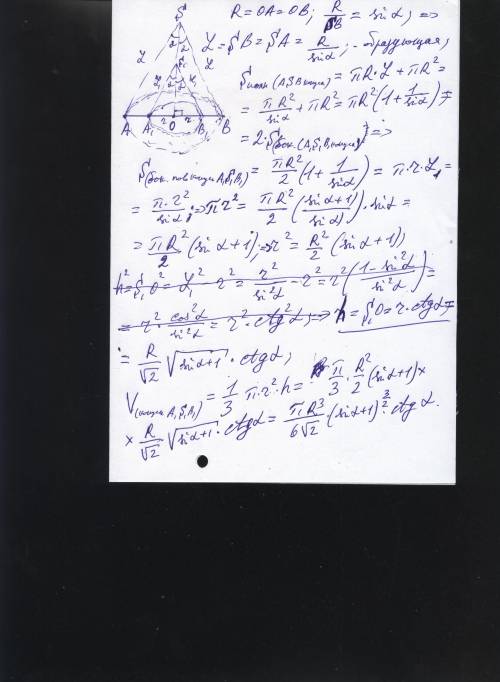 R = OA = OB; R/SB = sin α; =>
L = SB = SA = R/sin α; - образующая;
S полн (ASB конуса) = πR·L + πR² =
= πR²/sin α + πR² = πR²(1 + 1/sin α) =
= 2·S бок. (A₁S₁B₁ конуса) =>
S бок. пов конуса A₁S₁B₁ = πR²/2 (1 + 1/sin α) = π·r·L₁ =
= π·r²/sin α; => πr² = πR²/2 ((sin α + 1)/sin α)·sin α =
= πR²/2 (sin α + 1); => r² = R²/2 (sin α + 1)
h² = S₁O² = L₁² - r² = r²/sin²α - r² = r²((1 - sin²α)/sin²α) =
= r²·cos²α/sin²α = r²·ctg²α; => h = S₁O = r·ctg α =
= R/√2 √(sin α + 1)·ctg α;
V (конуса A₁S₁B₁) = 1/3 π·r²·h = π/3·R²/2 (sin α + 1) ×
× R/√2 √(sin α + 1)·ctg α = πR³/6√2 (sin α + 1)^(3/2) ctg α.
S
L
α α
L
S₁
α α
A A₁ r O r B₁ B